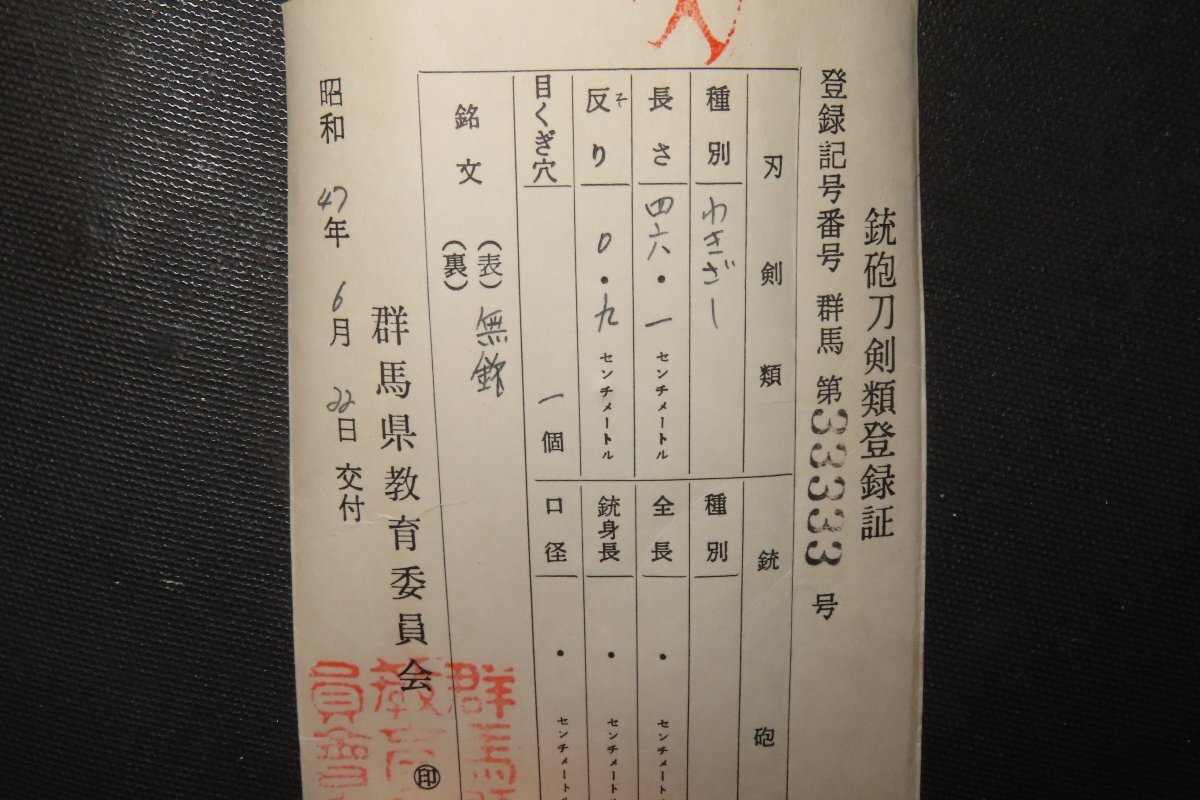 銃砲刀剣類登録証
登録記号番号 群馬 第33333号
刃剣類
種別 わきざし
長さ 四六・一センチメートル
反り 0・九センチメートル
そ
目くぎ穴 一個
銘文 (表) 無銘
(裏)
銃砲
種別
全長 ・ センチメートル
銃身長 ・ センチメートル
口径 ・ センチメートル
群馬県教育委員会 ㊞
昭和47年6月22日交付
群馬
教育
員會